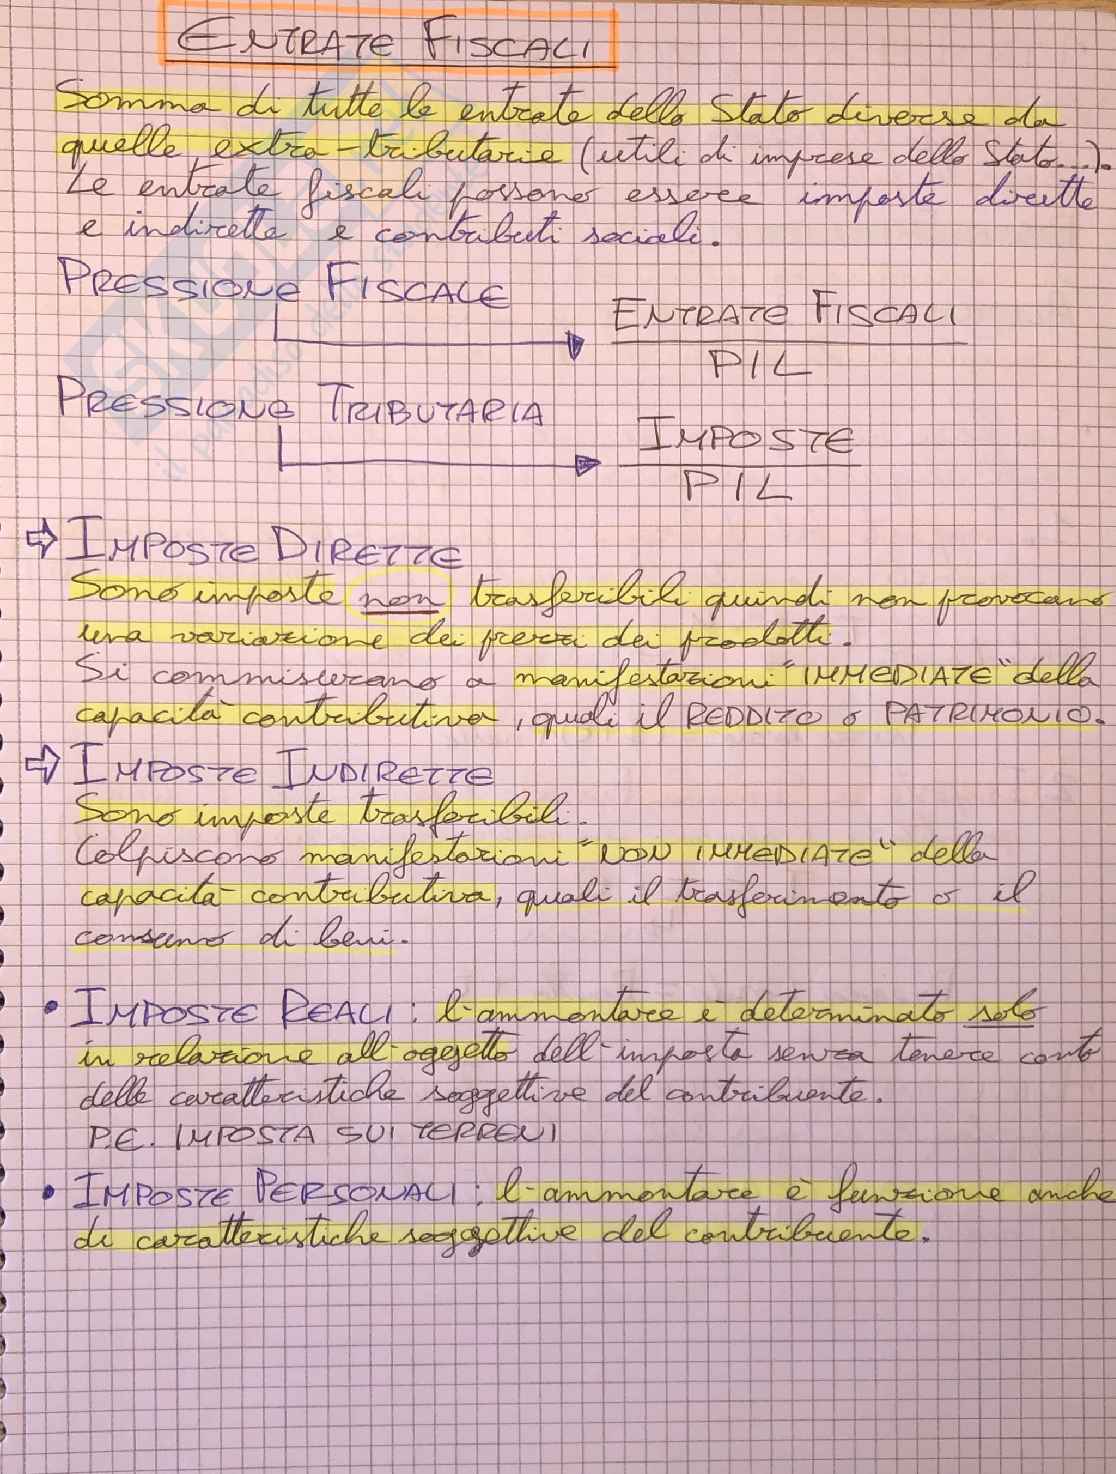 ENTRATE FISCALI
Somma di tutte le entrate dello Stato diverse da
quelle extra-tributarie (utili di imprese dello Stato...).
Le entrate fiscali possono essere imposte dirette
e indirette e contributi sociali.
PRESSIONE FISCALE
ENTRATE FISCALI
PIL
PRESSIONE TRIBUTARIA
IMPOSTE
PIL
⇨ IMPOSTE DIRETTE
Sono imposte non trasferibili quindi non provocano
una variazione dei prezzi dei prodotti.
Si commisurano a manifestazioni "IMMEDIATE" della
capacità contributiva, quali il REDDITO o PATRIMONIO.
⇨ IMPOSTE INDIRETTE
Sono imposte trasferibili.
Colpiscono manifestazioni "NON IMMEDIATE" della
capacità contributiva, quali il trasferimento o il
consumo di beni.
• IMPOSTE REALI: l'ammontare è determinato solo
in relazione all'oggetto dell'imposta senza tenere conto
delle caratteristiche soggettive del contribuente.
P.E. IMPOSTA SUI TERRENI
• IMPOSTE PERSONALI: l'ammontare è funzione anche
di caratteristiche soggettive del contribuente.